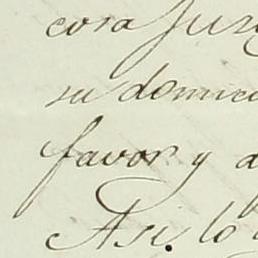 cora Juris
su domici
favor y a
Asi. lo